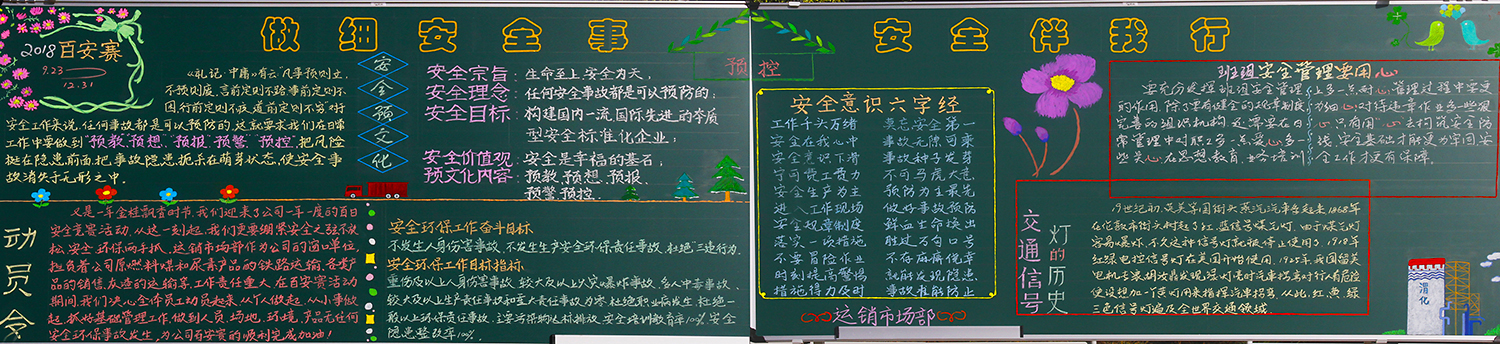 做细安全事
2018百安赛
9.23
12.31
《礼记·中庸》有云"凡事预则立,
不预则废、言前定则不跲、事前定则不
困、行前定则不疚、道前定则不穷"对
安全工作来说,任何事故都是可以预防的,这就要求我们在日常
工作中要做到"预教、预想、"预报、预警、"预控",把风险
挺在隐患前面,把事故隐患扼杀在萌芽状态,使安全事
故消失于无形之中.
安
全
预
文
化
安全宗旨:生命至上,安全为天;
安全理念:任何安全事故都是可以预防的;
安全目标:构建国内一流,国际先进的本质
型安全标准化企业;
安全价值观:安全是幸福的基石;
预文化内容:预教、预想、预报、
预警、预控.
动员令
又是一年金桂飘香时节,我们迎来了公司一年一度的百日
安全竞赛活动,从这一刻起,我们更要绷紧安全之弦不放
松,安全、环保两手抓,运销市场部作为公司的窗口单位,
担负着公司原燃料煤和尿素产品的铁路运输,各类产
品的销售,发运的运输等工作,责任重大,在百安赛活动
期间,我们决心全体员工动员起来,从个人做起,从小事做
起,抓好基础管理工作,做到人员、场地、环境、产品无任何
安全环保事故发生,为公司百安赛的顺利完成加油!
安全环保工作奋斗目标
不发生人身伤害事故,不发生生产安全环保责任事故,杜绝"三违行为.
安全环保工作目标指标
重伤及以上人身伤害事故,较大及以上火灾爆炸事故,多人中毒事故
较大及以上生产责任事故和重大责任事故为零,杜绝职业病发生,杜绝一
般以上环保责任事故,主要污染物达标排放,安全培训教育率100%,安全
隐患整改率100%.
安全伴我行
预控
安全意识六字经
工作千头万绪 莫忘安全第一
安全在我心中 事故无隙可乘
安全意识下滑 事故种子发芽
不可马虎大意
安全生产为主 预防为主最先
进入工作现场 做好事故预防
安全规章制度 鲜血生命换出
落实一项措施 胜过万句口号
不要冒险作业 不存麻痹侥幸
时刻提高警惕 及时发现隐患
措施得力及时 事故准能防止
运销市场部
班组安全管理要用心
要充分发挥班组安全管理上多一点耐心,管理过程中要更
的作用,除了要有健全的规章制度、
完善的组织机构,还需要在日
常管理中对职工多一点爱心、多一
些关心,在思想教育、业务培训
交通信号
灯的历史
19世纪初,英美等国街头蒸汽汽车多起来,1868年
在伦敦市街头树起了红、蓝信号煤气灯,由于煤气灯
容易爆炸,不久这种信号灯就被停止使用了,
红绿电控信号灯在美国开始使用,1925年,我国留美
三色信号灯遍及全世界交通领域.
渭化